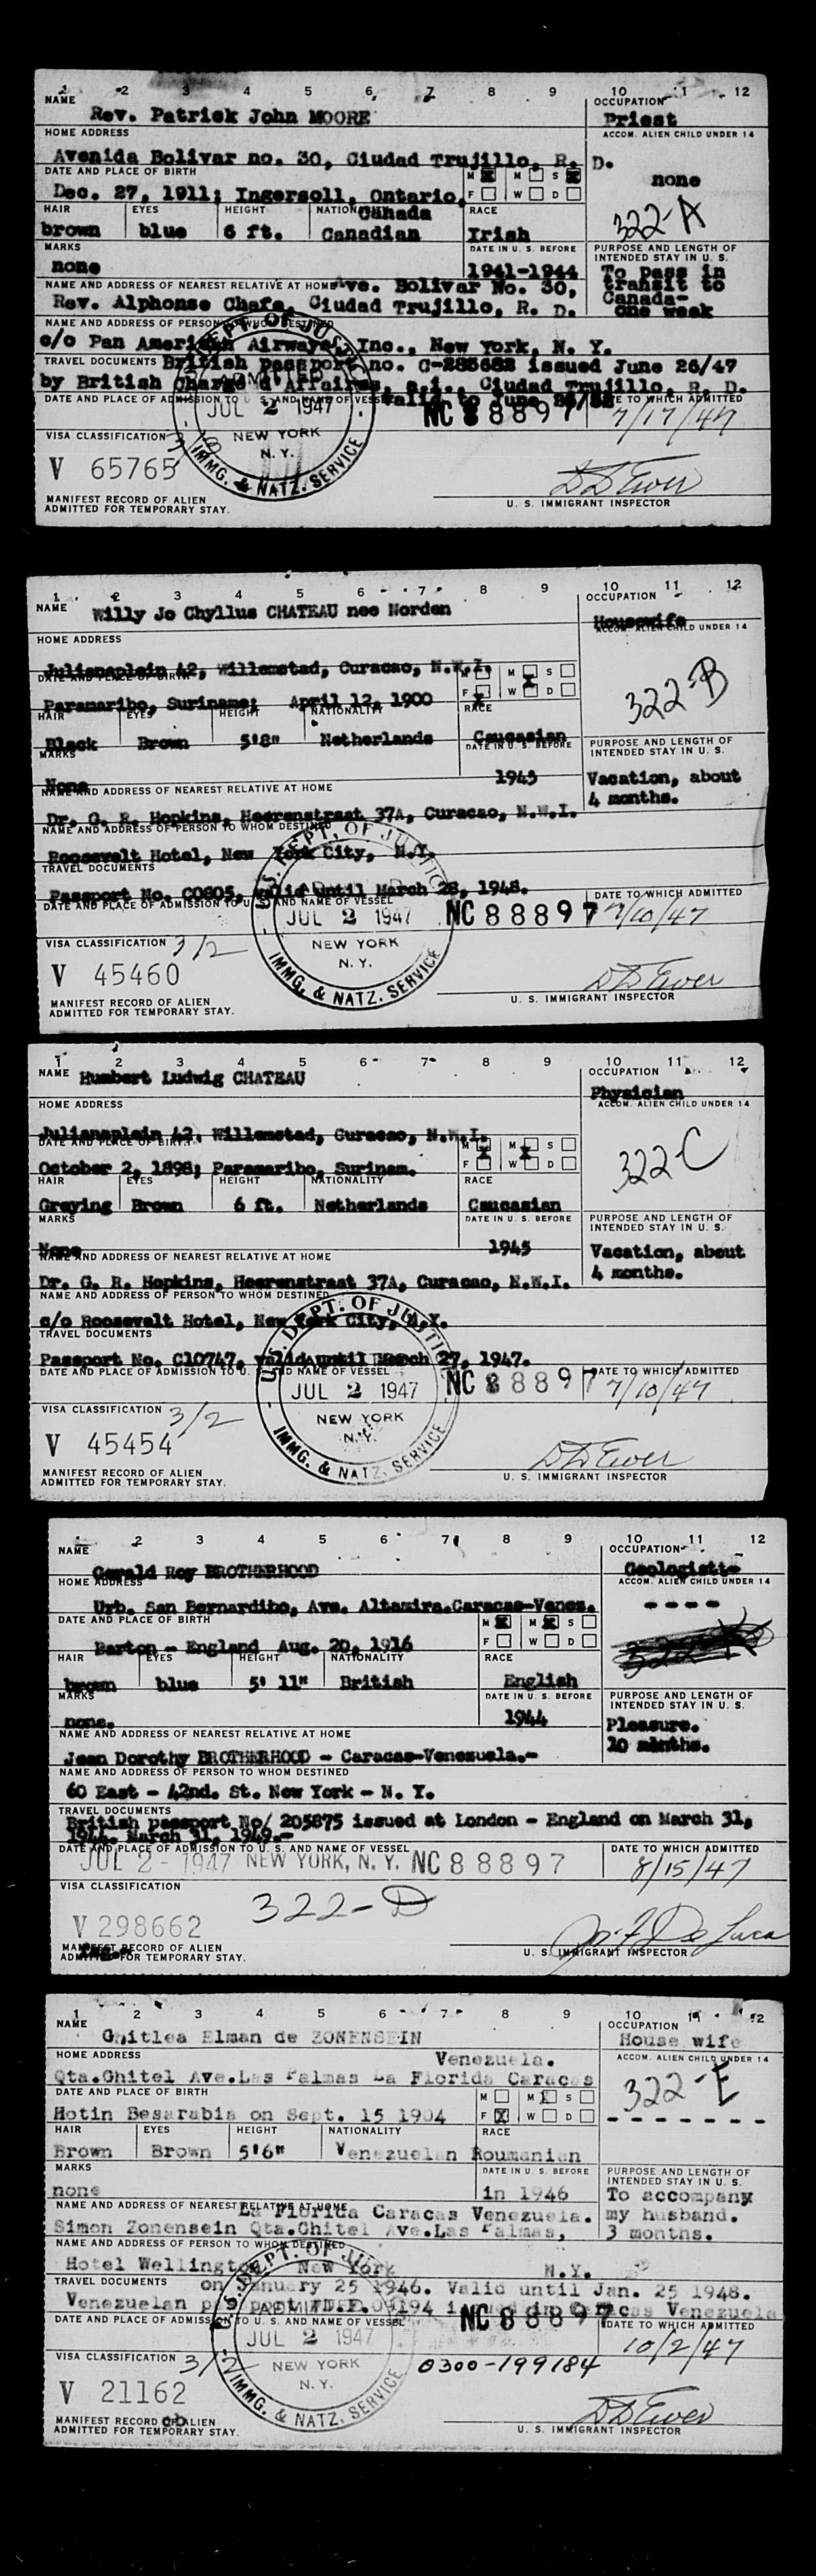 1 2 3 4 5 6 7 8 9 10 11 12
NAME Rev. Patrick John MOORE OCCUPATION Priest
HOME ADDRESS ACCOM. ALIEN CHILD UNDER 14
Avenida Bolivar no. 30, Ciudad Trujillo, R. D.
DATE AND PLACE OF BIRTH M M S none
Dec. 27, 1911; Ingersoll, Ontario, F W D
HAIR EYES HEIGHT NATION Canada RACE 322-A
brown blue 6 ft. Canadian Irish
MARKS DATE IN U. S. BEFORE PURPOSE AND LENGTH OF INTENDED STAY IN U. S.
none 1941-1944 To pass in transit to Canada- one week
NAME AND ADDRESS OF NEAREST RELATIVE AT HOME Ave. Bolivar No. 30,
Rev. Alphonse Chafe, Ciudad Trujillo, R. D.
NAME AND ADDRESS OF PERSON TO WHOM DESTINED
c/o Pan American Airways, Inc., New York, N. Y.
TRAVEL DOCUMENTS British passport no. issued June 26/47
by British Charge d'Affaires, a.i., Ciudad Trujillo, R. D.
DATE AND PLACE OF ADMISSION TO U. S. AND NAME OF VESSEL valid to June DATE TO WHICH ADMITTED
JUL 2 1947 NC 88897 7/17/47
VISA CLASSIFICATION 3/3 NEW YORK N. Y.
V 65765 IMMG. & NATZ. SERVICE D D Ewer
MANIFEST RECORD OF ALIEN U. S. IMMIGRANT INSPECTOR
ADMITTED FOR TEMPORARY STAY.
1 2 3 4 5 6 7 8 9 10 11 12
NAME Willy Jo Chyllus CHATEAU nee Norden OCCUPATION Housewife
HOME ADDRESS ACCOM. ALIEN CHILD UNDER 14
Julianaplein 42, Willemstad, Curacao, N.W.I.
DATE AND PLACE OF BIRTH M M S
Paramaribo, Suriname; April 12, 1900 F W D 322-B
HAIR EYES HEIGHT NATIONALITY RACE
Black Brown 5'8" Netherlands Caucasian
MARKS DATE IN U. S. BEFORE PURPOSE AND LENGTH OF INTENDED STAY IN U. S.
None 1945 Vacation, about 4 months.
NAME AND ADDRESS OF NEAREST RELATIVE AT HOME
Dr. G. R. Hopkins, Heerenstraat 37A, Curacao, N.W.I.
NAME AND ADDRESS OF PERSON TO WHOM DESTINED
Roosevelt Hotel, New York City, N.Y.
TRAVEL DOCUMENTS
Passport No. C0805, valid until March 28, 1948.
DATE AND PLACE OF ADMISSION TO U. S. AND NAME OF VESSEL DATE TO WHICH ADMITTED
JUL 2 1947 NC 88897 7/10/47
VISA CLASSIFICATION 3/2 NEW YORK N. Y.
V 45460 IMMG. & NATZ. SERVICE D D Ewer
MANIFEST RECORD OF ALIEN U. S. IMMIGRANT INSPECTOR
ADMITTED FOR TEMPORARY STAY.
1 2 3 4 5 6 7 8 9 10 11 12
NAME Humbert Ludwig CHATEAU OCCUPATION Physician
HOME ADDRESS ACCOM. ALIEN CHILD UNDER 14
Julianaplein 42, Willemstad, Curacao, N.W.I.
DATE AND PLACE OF BIRTH M M S
October 2, 1898; Paramaribo, Surinam. F W D 322-C
HAIR EYES HEIGHT NATIONALITY RACE
Graying Brown 6 ft. Netherlands Caucasian
MARKS DATE IN U. S. BEFORE PURPOSE AND LENGTH OF INTENDED STAY IN U. S.
None 1945 Vacation, about 4 months.
NAME AND ADDRESS OF NEAREST RELATIVE AT HOME
Dr. G. R. Hopkins, Heerenstraat 37A, Curacao, N.W.I.
NAME AND ADDRESS OF PERSON TO WHOM DESTINED
c/o Roosevelt Hotel, New York City, N.Y.
TRAVEL DOCUMENTS
Passport No. C10747, valid until March 27, 1947.
DATE AND PLACE OF ADMISSION TO U. S. AND NAME OF VESSEL DATE TO WHICH ADMITTED
JUL 2 1947 NC 88897 7/10/47
VISA CLASSIFICATION 3/2 NEW YORK N. Y.
V 45454 IMMG. & NATZ. SERVICE D D Ewer
MANIFEST RECORD OF ALIEN U. S. IMMIGRANT INSPECTOR
ADMITTED FOR TEMPORARY STAY.
1 2 3 4 5 6 7 8 9 10 11 12
NAME Gerald Roy BROTHERHOOD OCCUPATION Geologist
HOME ADDRESS ACCOM. ALIEN CHILD UNDER 14
Urb. San Bernardino, Ave. Altamira. Caracas-Venez. ----
DATE AND PLACE OF BIRTH M M S
Barton - England Aug. 20, 1916 F W D
HAIR EYES HEIGHT NATIONALITY RACE
brown blue 5' 11" British English
MARKS DATE IN U. S. BEFORE PURPOSE AND LENGTH OF INTENDED STAY IN U. S.
none. 1944 Pleasure. months.
NAME AND ADDRESS OF NEAREST RELATIVE AT HOME
Jean Dorothy BROTHERHOOD - Caracas-Venezuela.-
NAME AND ADDRESS OF PERSON TO WHOM DESTINED
60 East - 42nd. St. New York - N. Y.
TRAVEL DOCUMENTS
British passport No/ 205875 issued at London - England on March 31,
1944. March 31, 1949.-
DATE AND PLACE OF ADMISSION TO U. S. AND NAME OF VESSEL DATE TO WHICH ADMITTED
JUL 2 - 1947 NEW YORK, N. Y. NC 88897 8/15/47
VISA CLASSIFICATION 322-D
V 298662 De Luca
MANIFEST RECORD OF ALIEN U. S. IMMIGRANT INSPECTOR
ADMITTED FOR TEMPORARY STAY.
1 2 3 4 5 6 7 8 9 10 11 12
NAME Guitlea Elman de ZONENSEIN OCCUPATION House wife
HOME ADDRESS Venezuela. ACCOM. ALIEN CHILD UNDER 14
Qta.Ghitel Ave.Las Palmas La Florida Caracas 322-E
DATE AND PLACE OF BIRTH M M S
Hotin Besarabia on Sept. 15 1904 F W D
HAIR EYES HEIGHT NATIONALITY RACE
Brown Brown 5'6" Venezuelan Roumanian
MARKS DATE IN U. S. BEFORE PURPOSE AND LENGTH OF INTENDED STAY IN U. S.
none in 1946 To accompany my husband. 3 months.
NAME AND ADDRESS OF NEAREST RELATIVE AT HOME La Florida Caracas Venezuela.
Simon Zonensein Qta.Ghitel Ave.Las Palmas,
NAME AND ADDRESS OF PERSON TO WHOM DESTINED
Hotel Wellington New York N.Y.
TRAVEL DOCUMENTS on January 25 1946. Valid until Jan. 25 1948.
Venezuelan passport issued in Caracas Venezuela
DATE AND PLACE OF ADMISSION TO U. S. AND NAME OF VESSEL DATE TO WHICH ADMITTED
JUL 2 1947 NC 88897 10/2/47
VISA CLASSIFICATION 3/2 NEW YORK N. Y. 0300-199184
V 21162 IMMG. & NATZ. SERVICE D D Ewer
MANIFEST RECORD OF ALIEN U. S. IMMIGRANT INSPECTOR
ADMITTED FOR TEMPORARY STAY.